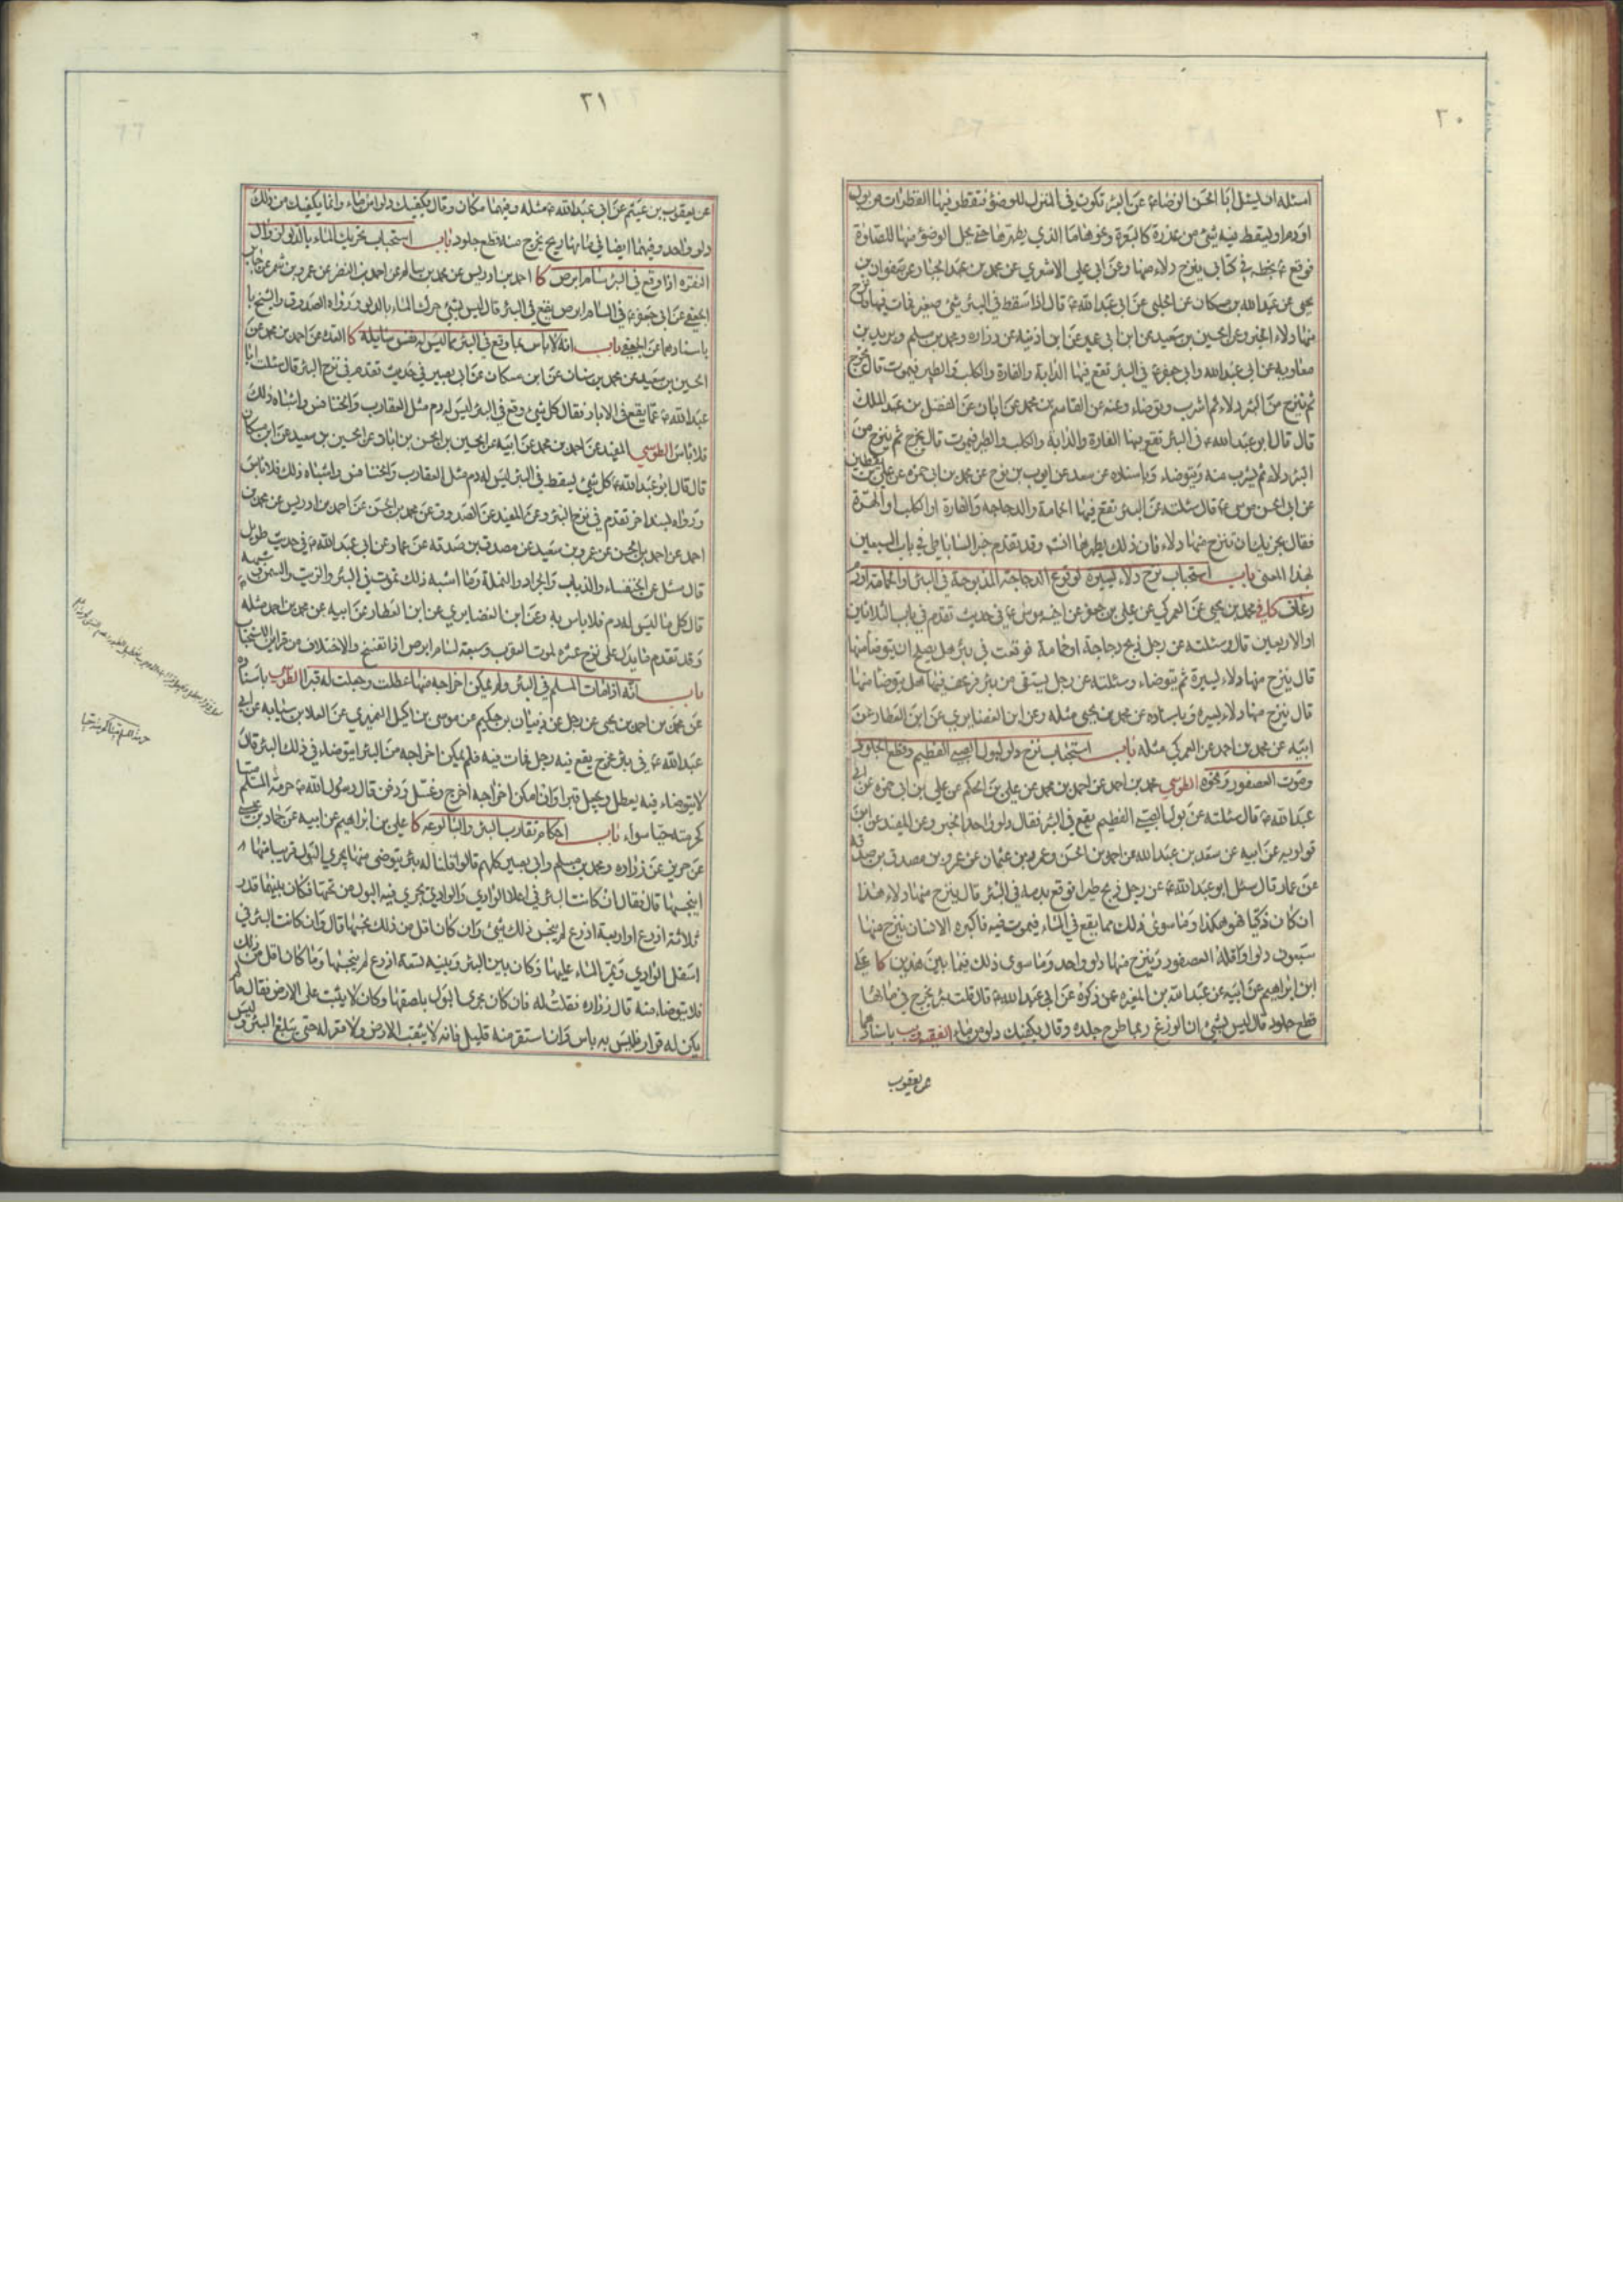 ٢٠
اسئله ان يسئل ابا الحسن الرضاء عن البئر تكون في المنزل للوضؤ فتقطر فيها القطرات من بول
او دم او يسقط فيه شئ من عذرة كالبعرة ونحوها ما الذي يطهرها حتى يحل الوضؤ منها للصلوة
فوقع ع بخطه في كتابي ينزح دلاء منها وعن ابي علي الاشعري عن محمد بن عبد الجبار عن صفوان بن
يحيى عن عبد الله بن مسكان عن الحلبي عن ابي عبد الله ع قال اذا سقط في البئر شئ صغير فمات فيها فانزح
منها دلاء الخبر وعن الحسين بن سعيد عن ابن ابي عمير عن ابن اذينه عن زراره ومحمد بن مسلم وبريد بن
معاويه عن ابي عبد الله وابي جعفر ع في البئر تقع فيها الدابة والفارة والكلب والطير فيموت قال يخرج
ثم ينزح من البئر دلاء ثم اشرب وتوضاء وعنه عن القاسم بن محمد عن ابان عن الفضل بن عبد الملك
قال قال ابو عبد الله ع في البئر تقع فيها الفارة والدابة والكلب والطير فيموت قال يخرج ثم ينزح من
البئر دلاء ثم يشرب منه ويتوضاء وباسناده عن سعد عن ايوب بن نوح عن محمد بن ابي حمزه عن علي بن يقطين
عن ابي الحسن موسى ع قال سئلته عن البئر تقع فيها الحمامة والدجاجه والفارة او الكلب او الهرة
فقال يجزيك ان تنزح منها دلاء فان ذلك يطهرها انشه وقد تقدم خبر الساباطي في باب السبعين
بهذا المعنى باب استحباب نزح دلاء يسيرة لوقوع الدجاجة المذبوحة في البئر او الحمامة او
رعاف كافي محمد بن يحيى عن العمركي عن علي بن جعفر عن اخيه موسى ع في حديث تقدم في باب الثلاثين
او الاربعين قال وسئلته عن رجل ذبح دجاجة او حمامة فوقعت في بئر هل يصلح ان يتوضأ منها
قال ينزح منها دلاء يسيرة ثم يتوضاء وسئلته عن رجل يستقى من بئر فرعف فيها هل يتوضأ منها
قال ينزح منها دلاء يسيره وباسناده عن محمد بن يحيى مثله وعن ابن الغضايري عن ابن العطار عن
ابيه عن محمد بن احمد عن العمركي مثله باب استحباب نزح دلو لبول الصبي الفطيم وقطع الجلود
وموت العصفور ونحوه الطوسي محمد بن احمد عن احمد بن محمد عن علي بن الحكم عن علي بن ابي حمزه عن ابي
عبد الله ع قال سئلته عن بول الصبي الفطيم يقع في البئر فقال دلو واحد الخبر وعن المفيد عن ابن
قولويه عن ابيه عن سعد بن عبد الله عن احمد بن الحسن وعمرو بن عثمان عن عمرو بن مصدق بن صدقه
عن عمار قال سئل ابو عبد الله ع عن رجل ذبح طيرا فوقع بدمه في البئر قال ينزح منها دلاء هذا
ان كان ذكيا فهو هكذا وما سوى ذلك مما يقع في الماء فيموت فيه فاكبره الانسان ينزح منها
سبعون دلوا واقله العصفور وينزح منها دلو واحد وما سوى ذلك فيما بين هذين كا علي
ابن ابراهيم عن ابيه عن عبد الله بن المغيره عمن ذكره عن ابي عبد الله ع قال قلت بئر يخرج في مائها
قطع جلود قال ليس بشئ ان الوزغ ربما طرح جلده وقال يكفيك دلو من ماء الفقيه ويب باسنادهما
عن يعقوب
٢١
عن يعقوب بن عيثم عن ابي عبد الله ع مثله وفيهما مكان وقال يكفيك دلو من ماء وانما يكفيك من ذلك
دلو واحد وفيهما ايضا في مائها ريح يخرج منها قطع جلود باب استحباب تحريك الماء بالدلو لزوال
النفره اذا وقع في البئر سام ابرص كا احمد بن ادريس عن محمد بن سالم عن احمد بن النضر عن عمرو بن شمر عن جابر
الجعفي عن ابي جعفر ع في السام ابرص يقع في البئر قال ليس بشئ حرك الماء بالدلو ورواه الصدوق والشيخ با
باسنادهما عن الجعفي باب انه لا باس بما وقع في البئر مما ليس له نفس سايلة كا العدة عن احمد بن محمد عن
الحسين بن سعيد عن محمد بن سنان عن ابن مسكان عن ابي بصير في حديث تقدم في نزح البئر قال سئلت ابا
عبد الله ع عما يقع في الابار فقال كل شئ وقع في البئر ليس له دم مثل العقارب والخنافس واشباه ذلك
فلا باس الطوسي المفيد عن احمد بن محمد عن ابيه عن الحسين بن الحسن بن ابان عن الحسين بن سعيد عن ابن مسكان
قال قال ابو عبد الله ع كل شئ يسقط في البئر ليس له دم مثل العقارب والخنافس واشباه ذلك فلا باس
ورواه بسند اخر تقدم في نزح البئر وعن المفيد عن الصدوق عن محمد بن الحسن عن احمد بن ادريس عن محمد بن
احمد عن احمد بن الحسن عن عمرو بن سعيد عن مصدق بن صدقه عن عمار عن ابي عبد الله ع في حديث طويل
قال سئل عن الخنفساء والذباب والجراد والنملة وما اشبه ذلك تموت في البئر والزيت والسمن وشبهه
قال كل ما ليس له دم فلا باس به وعن ابن الغضايري عن ابن العطار عن ابيه عن محمد بن احمد مثله
وقد تقدم ما يدل على نزح عشره لموت العقرب وسبعة لسام ابرص اذا تفسخ والاختلاف من قراين الاستحباب
باب انه اذا مات المسلم في البئر ولم يمكن اخراجه منها عطلت وجعلت له قبرا الطوسي باسناده
عن محمد بن احمد بن يحيى عن رجل عن ذبيان بن حكيم عن موسى بن اكيل النميري عن العلا بن سيابه عن ابي
عبد الله ع في بئر مخرج يقع فيه رجل فمات فيه فلم يمكن اخراجه من البئر ايتوضاء في ذلك البئر قال
لا يتوضاء فيه يعطل ويجعل قبرا وان امكن اخراجه اخرج وغسل ودفن قال رسول الله ص حرمة المسلم ميتا
كحرمته حيا سواء باب احكام تقارب البئر والبالوعه كا علي بن ابراهيم عن ابيه عن حماد بن عيسى
عن حريز عن زراره ومحمد بن مسلم وابي بصير كلهم قالوا قلنا له بئر يتوضى منها يجري البول قريبا منها
اينجسها قال فقال ان كانت البئر في اعلا الوادي والوادي يجري فيه البول من تحتها فكان بينهما قدر
ثلاثة اذرع او اربعة اذرع لم ينجس ذلك شئ وان كان اقل من ذلك نجسها قال وان كانت البئر في
اسفل الوادي ويمر الماء عليها وكان بين البئر وبينه تسعة اذرع لم ينجسها وما كان اقل من ذلك
فلا يتوضاء منه قال زراره فقلت له فان كان مجرى البول بلصقها وكان لا يثبت على الارض فقال ما لم
يكن له قرار فليس به باس وان استقر منه قليل فانه لا يثقب الارض ولا مقر له حتى يبلغ البئر وليس